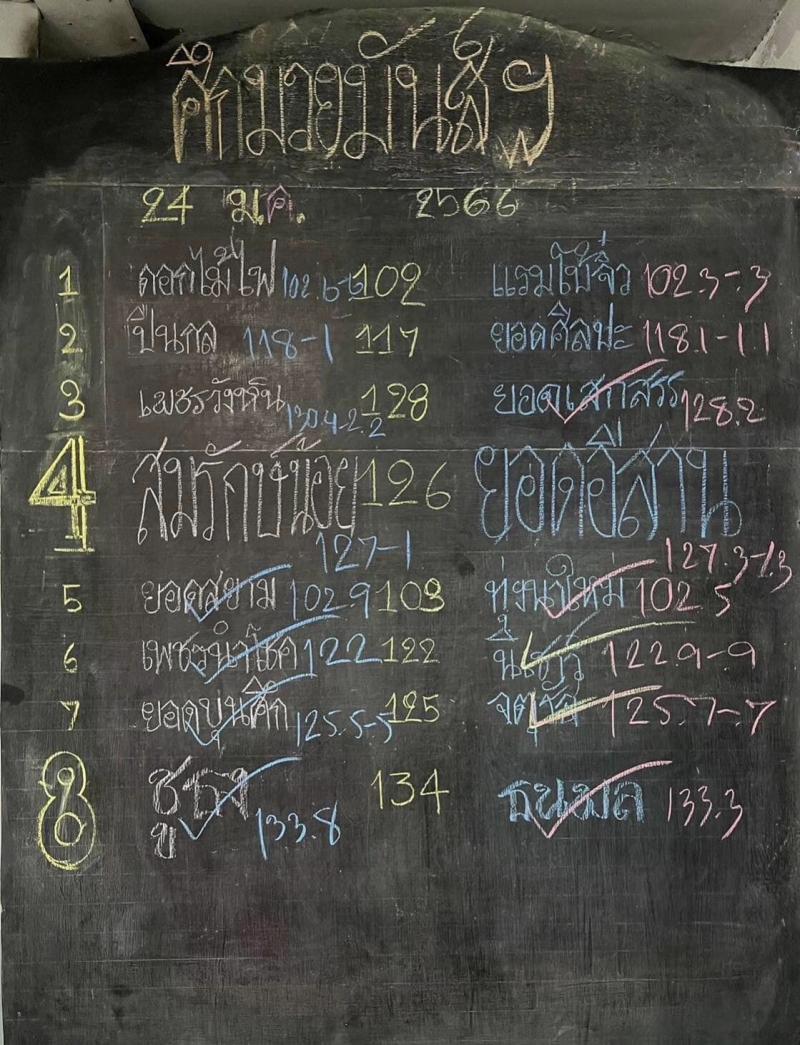 ศึกมวยมันส์ฯ
24 ม.ค. 2566
1 ดอกไม้ไฟ 102.6-6 102 แรมโบ้จิ๋ว 102.3-.3
2 ปืนกล 118-1 117 ยอดศิลปะ 118.1-1.1
3 เพชรวังหิน 130.4-2.2 128 ยอดเสกสรร 128.2
4 สมรักษ์น้อย 126 ยอดอีสาน
127-1 127.3-1.3
5 ยอดสยาม 102.9 103 ทุ่งนาใหม่ 102.5
6 เพชรนำโชค 122 122 122.9-.9
7 ยอดขุนศึก 125.5-5 125 125.7-.7
8 ชูธง 133.8 134 ธนพล 133.3